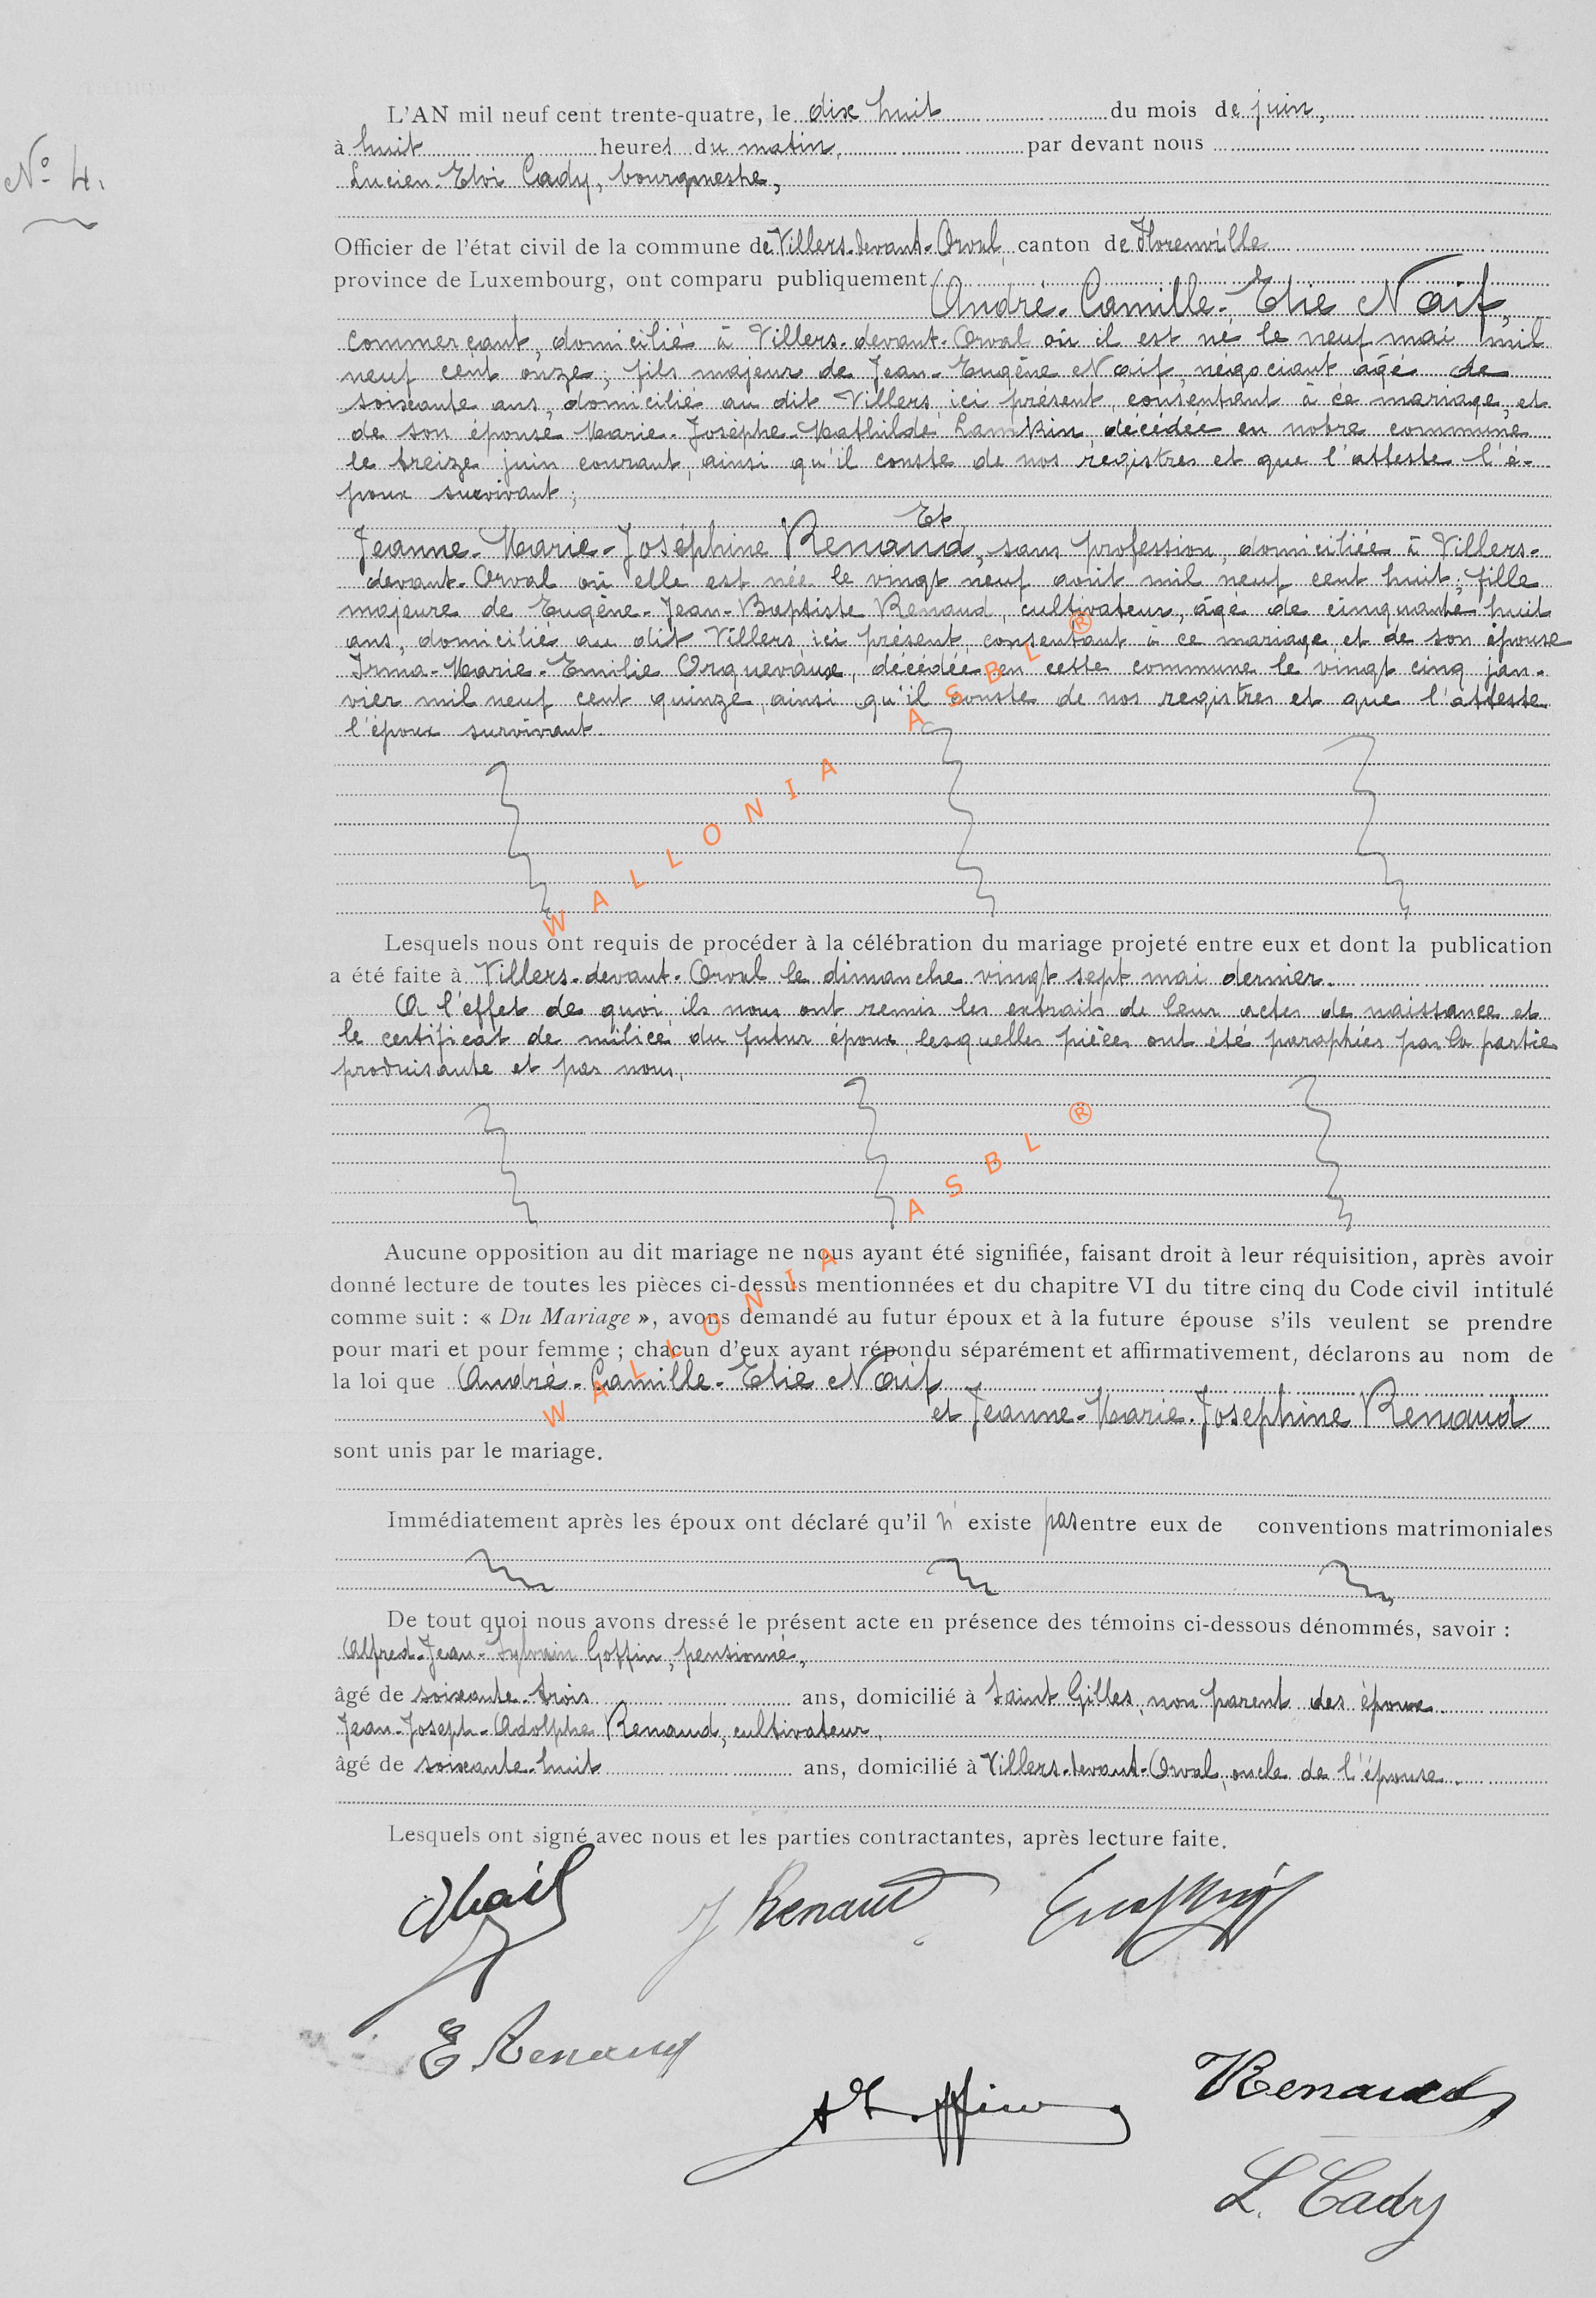 L'AN mil neuf cent trente-quatre, le dix huit du mois de juin,
à huit heures du matin, par devant nous
N° 4.
Lucien Elvi Cady, bourgmestre,
Officier de l'état civil de la commune de Villers-devant-Orval, canton de Florenville
province de Luxembourg, ont comparu publiquement
André-Camille-Elie Naif,
commerçant, domicilié à Villers-devant-Orval où il est né le neuf mai mil
neuf cent onze; fils majeur de Jean-Eugène Naif, négociant âgé de
soixante ans, domicilié au dit Villers, ici présent, consentant à ce mariage, et
de son épouse Marie-Josèphe-Mathilde Lamkin, décédée en notre commune
le treize juin courant, ainsi qu'il conste de nos registres et que l'atteste l'é-
poux survivant;
Et
Jeanne-Marie-Joséphine Renaud, sans profession, domiciliée à Villers-
devant-Orval où elle est née le vingt neuf août mil neuf cent huit; fille
majeure de Eugène-Jean-Baptiste Renaud, cultivateur, âgé de cinquante huit
ans, domicilié au dit Villers, ici présent, consentant à ce mariage et de son épouse
Irma-Marie-Emilie Orquevaux, décédée en cette commune le vingt cinq jan-
vier mil neuf cent quinze, ainsi qu'il conste de nos registres et que l'atteste
l'époux survivant.
WALLONIA ASBL ®
Lesquels nous ont requis de procéder à la célébration du mariage projeté entre eux et dont la publication
a été faite à Villers-devant-Orval le dimanche vingt sept mai dernier.
A l'effet de quoi, ils nous ont remis les extraits de leur actes de naissance et
le certificat de milice du futur époux, lesquelles pièces ont été paraphées par la partie
produisante et par nous.
WALLONIA ASBL ®
Aucune opposition au dit mariage ne nous ayant été signifiée, faisant droit à leur réquisition, après avoir
donné lecture de toutes les pièces ci-dessus mentionnées et du chapitre VI du titre cinq du Code civil intitulé
comme suit : « Du Mariage », avons demandé au futur époux et à la future épouse s'ils veulent se prendre
pour mari et pour femme ; chacun d'eux ayant répondu séparément et affirmativement, déclarons au nom de
la loi que André-Camille-Elie Naif
et Jeanne-Marie-Josephine Renaud
sont unis par le mariage.
Immédiatement après les époux ont déclaré qu'il n' existe pas entre eux de conventions matrimoniales
De tout quoi nous avons dressé le présent acte en présence des témoins ci-dessous dénommés, savoir :
Alfred-Jean-Sylvain Goffin, pensionné,
âgé de soixante-trois ans, domicilié à Saint Gilles, non parent des époux
Jean-Joseph-Adolphe Renaud, cultivateur,
âgé de soixante-huit ans, domicilié à Villers-devant-Orval, oncle de l'épouse.
Lesquels ont signé avec nous et les parties contractantes, après lecture faite.
ANaif J Renaud
E. Renaud
Renaud
L. Cady